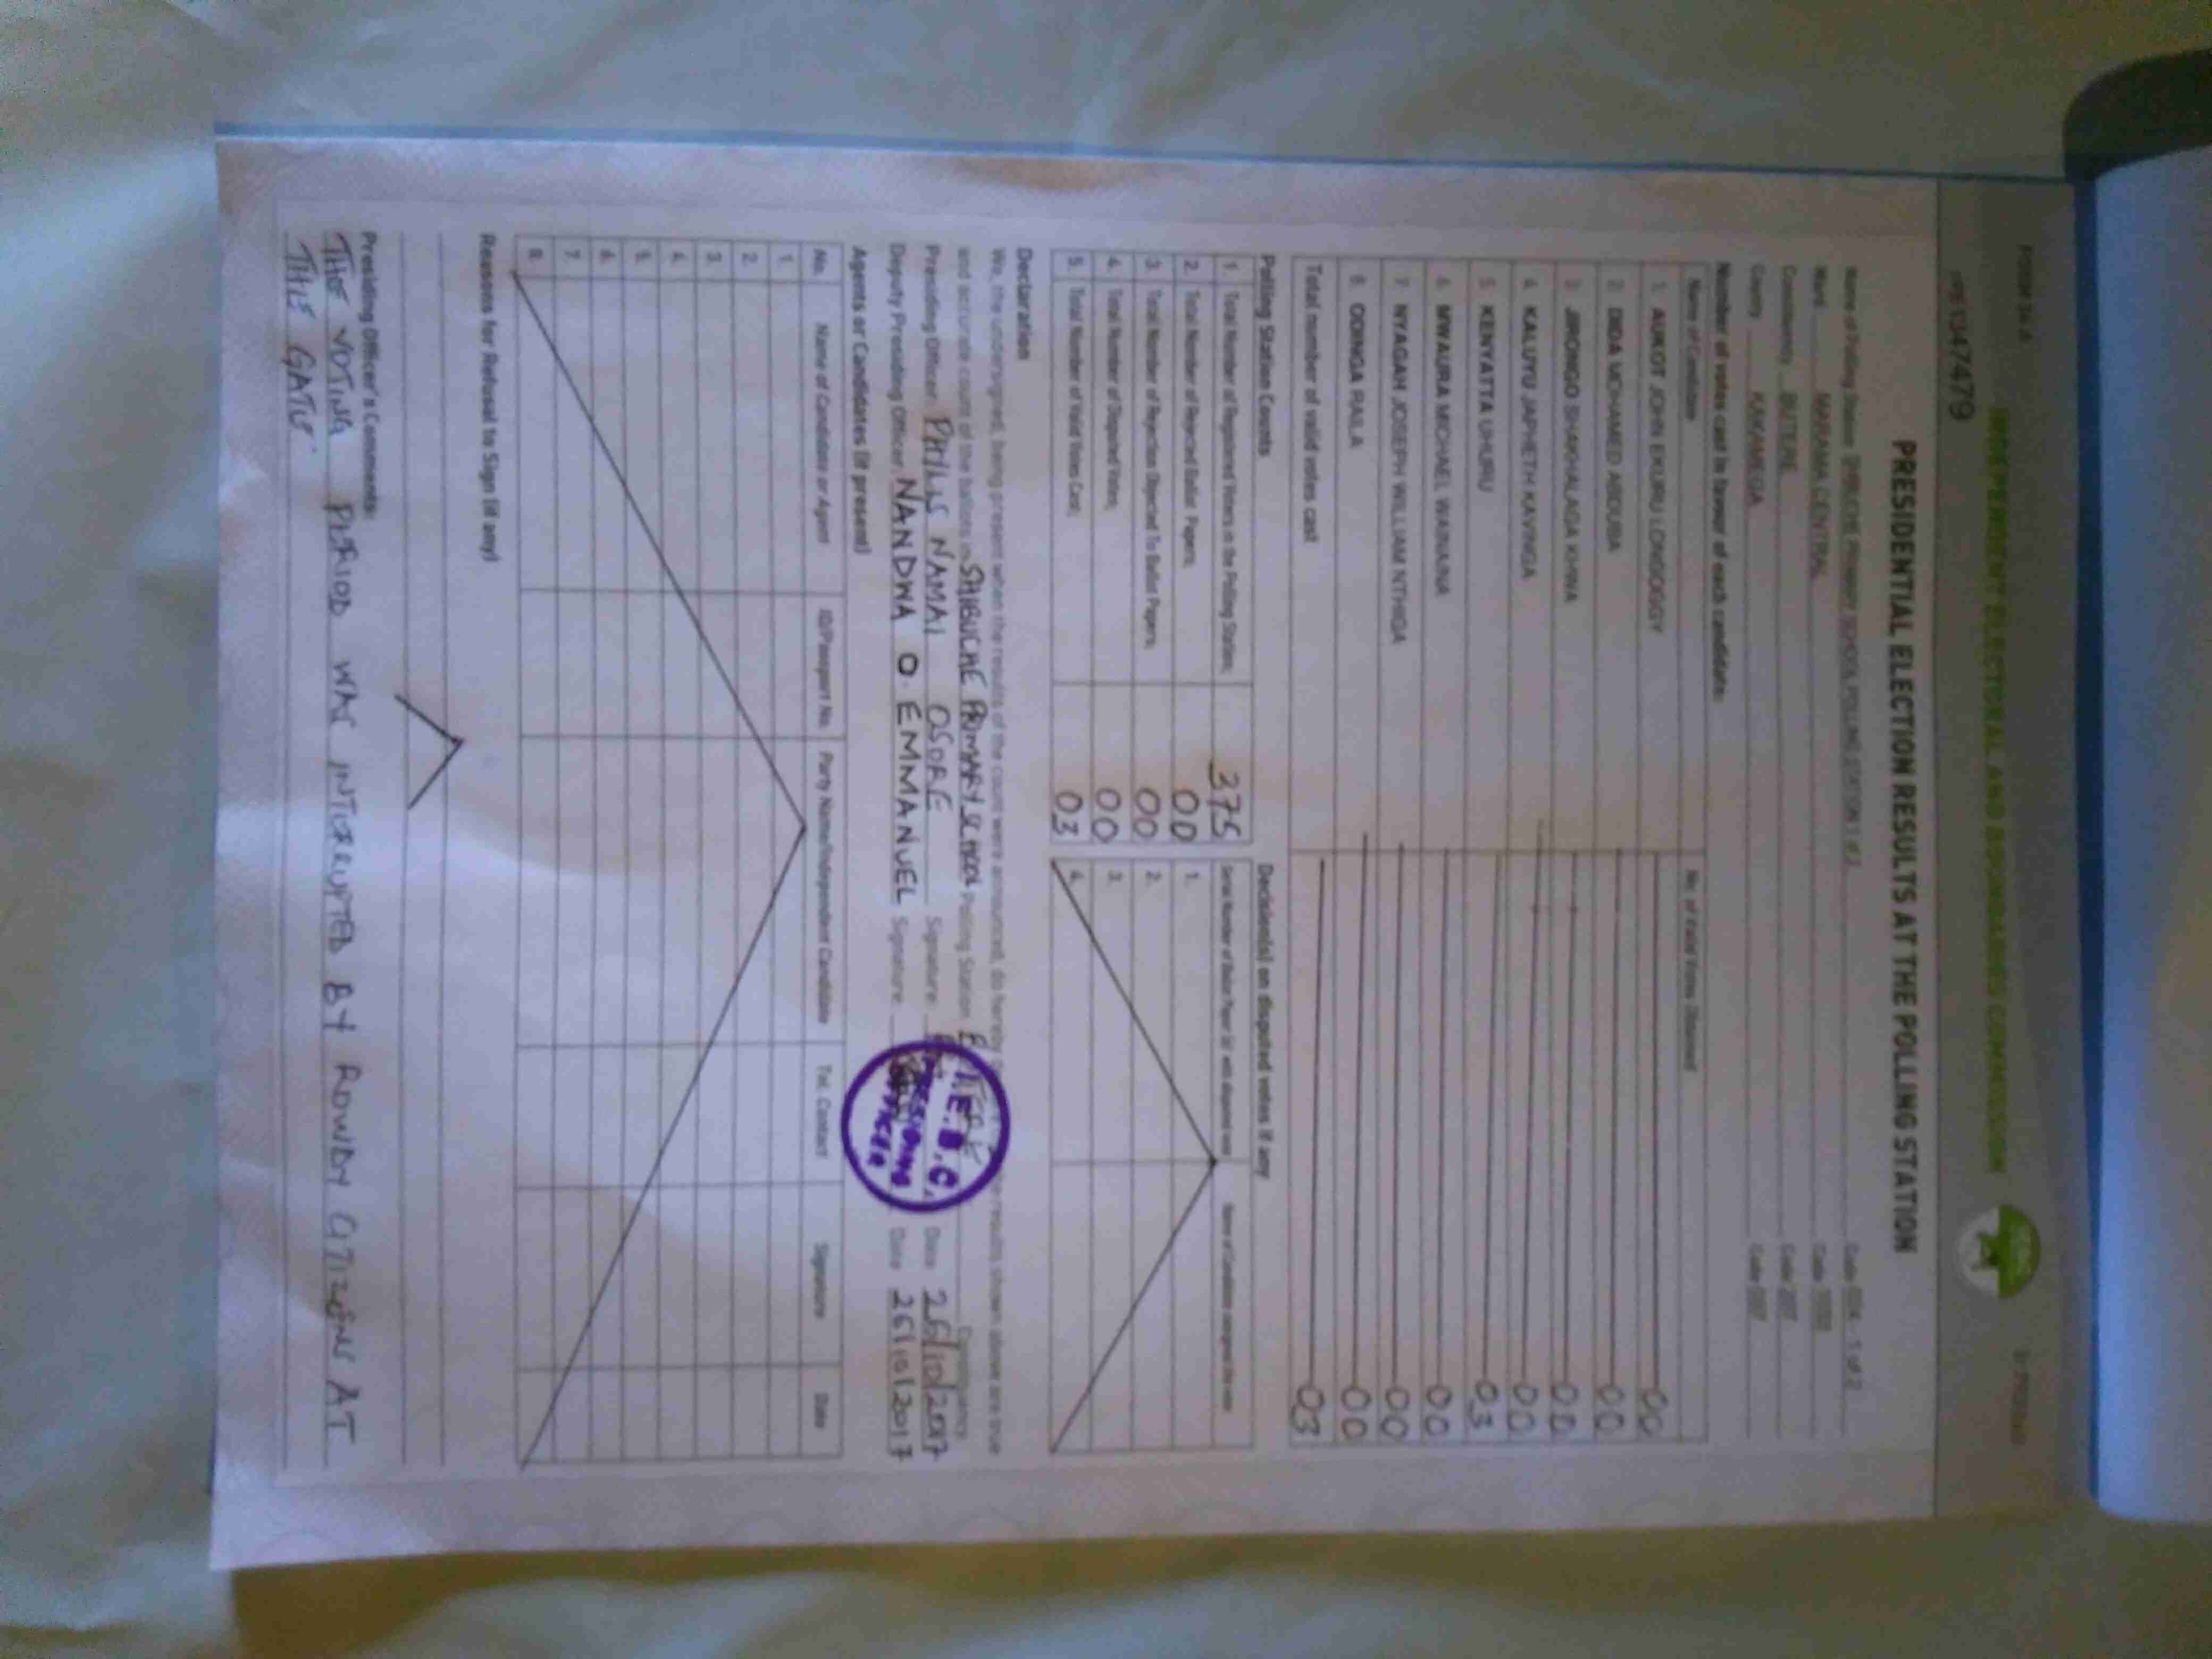 FORM 34 A
INDEPENDENT ELECTORAL AND BOUNDARIES COMMISSION
1347479
PRESIDENTIAL ELECTION RESULTS AT THE POLLING STATION
Name of Polling Station SHIBUCHE PRIMARY SCHOOL POLLING STATION 1 of 2 Code 1 of 2
Ward MARAMA CENTRAL Code
Constituency BUTERE Code
County KAKAMEGA Code
Number of votes cast in favor of each candidate:
Name of Candidate No. of Valid Votes Obtained
1. AUKOT JOHN EKURU LONGOGGY 00
2. DIDA MOHAMED ABDUBA 00
3. JIRONGO SHAKHALAGA KHWA 00
4. KALUYU JAPHETH KAVINGA 00
5. KENYATTA UHURU 03
6. MWAURA MICHAEL WAINAINA 00
7. NYAGAH JOSEPH WILLIAM NTHIGA 00
8. ODINGA RAILA 00
Total number of valid votes cast 03
Polling Station Counts
1. Total Number of Registered Voters in the Polling Station; 375
2. Total Number of Rejected Ballot Papers; 00
3. Total Number of Rejection Objected To Ballot Papers; 00
4. Total Number of Disputed Votes; 00
5. Total Number of Valid Votes Cast; 03
Decision(s) on disputed votes if any
1.
2.
3.
4.
Declaration
We, the undersigned, being present when the results of the count were announced, do hereby results shown above are true
and accurate count of the ballots in SHIBUCHE PRIMARY SCHOOL Polling Station Constituency
Presiding Officer PHILIS NAMAI OSORE Signature Date 26/10/2017
Deputy Presiding Officer NANDWA O. EMMANUEL Signature Date 26/10/2017
I.E.B.C.
PRESIDING
OFFICER
Agents or Candidates (if present)
No. Name of Candidate or Agent ID/Passport No. Party Name/Independent Candidate Tel. Contact Signature Date
1.
2.
3.
4.
5.
6.
7.
8.
Reasons for Refusal to Sign (if any)
Presiding Officer's Comments:
THE VOTING PERIOD WAS INTERRUPTED BY ROWDY CITIZENS AT
THE GATE.